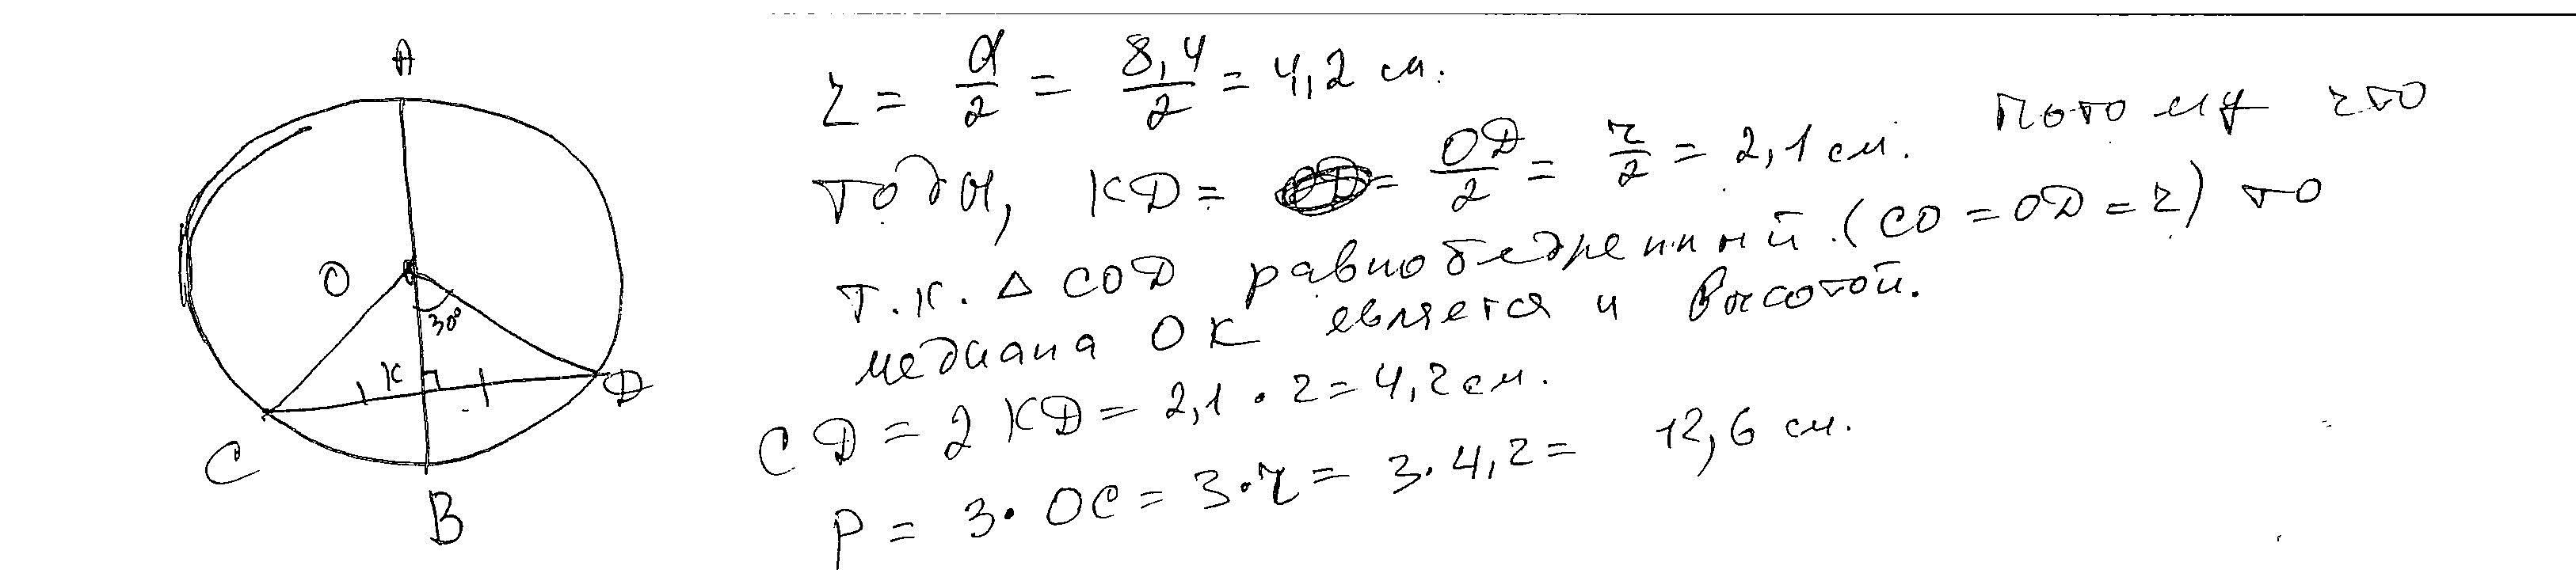 A
O
30°
K
C
D
B
r = d/2 = 8,4/2 = 4,2 см.
тогда, KD = = OD/2 = r/2 = 2,1 см. Потому что
т.к. △ COD равнобедренный. (CO = OD = r) то
медиана OK евляется и высотой.
CD = 2 KD = 2,1 · 2 = 4,2 см.
P = 3 · OC = 3 · r = 3 · 4,2 = 12,6 см.